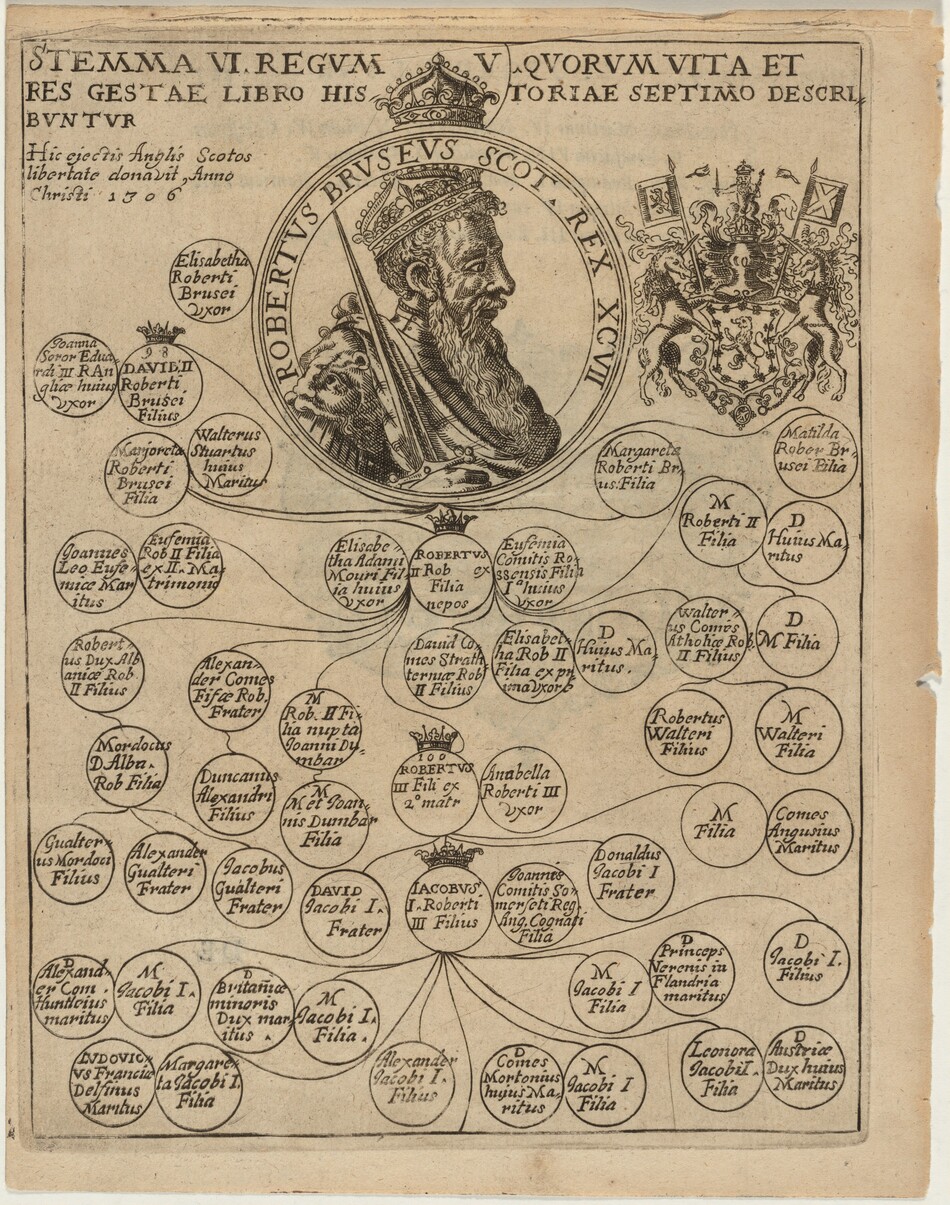 STEMMA VI. REGVM V. QVORVM VITA ET
RES GESTAE LIBRO HIS TORIAE SEPTIMO DESCRI,
BVNTVR
Hic ejectis Anglis Scotos
libertate donavit, Anno
Christi 1306
ROBERTVS BRVSEVS SCOT. REX XCVII
Elisabetha
Roberti
Brusei
Vxor
Joanna
Soror Edua
rdi III R An
gliæ huius
Vxor
98
DAVID II
Roberti
Brusei
Filius
Marjoreta
Roberti
Brusei
Filia
Walterus
Stuartus
huius
Maritus
Margareta
Roberti Br
us. Filia
Matilda
Rober Br
usei Filia
M
Roberti II
Filia
D
Huius Ma
ritus
Joannes
Leo Eufe
miæ Mar
itus
Eufemia
Rob II Filia
ex II. Ma
trimonio
Elisabe
tha Adami
Mouri Fil
ia huius
Vxor
ROBERTVS
II Rob ex
Filia
nepos
Eufemia
Comitis Ro
ssensis Filia
Iª huius
Vxor
Robert
us Dux Alb
aniæ Rob
II Filius
Alexan
der Comes
Fifæ Rob.
Frater
M
Rob. II Fi
lia nupta
Joanni Du
mbar
David Co
mes Strath
terniæ Rob
II Filius
Elisabet
ha Rob II
Filia ex pri
ma Vxore
D
Huius Ma
ritus.
Walter
us Comes
Atholiæ Rob.
II Filius
D
M Filia
Mordocus
D Alba.
Rob Filia
Duncanus
Alexandri
Filius
M
M et Joan
nis Dumbar
Filia
100
ROBERTVS
III Fili ex
2º matr
Anabella
Roberti III
Vxor
Robertus
Walteri
Filius
M
Walteri
Filia
Gualter
us Mordoci
Filius
Alexander
Gualteri
Frater
Jacobus
Gualteri
Frater
DAVID
Jacobi I.
Frater
IACOBVS
I. Roberti
III Filius
Joannis
Comitis So
merseti Reg.
Ang. Cognati
Filia
Donaldus
Jacobi I
Frater
M
Filia
Comes
Angusius
Maritus
D
Alexand
er Com.
Huntleius
maritus
M
Jacobi I.
Filia
D
Britaniæ
minoris
Dux mar
itus
M
Jacobi I.
Filia.
M
Jacobi I
Filia
D
Princeps
Verenis in
Flandria
maritus
D
Jacobi I.
Filius
LVDOVIC
VS Franciæ
Delfinus
Maritus
Margare
ta Jacobi I.
Filia
Alexander
Jacobi I.
Filius
D
Comes
Mortonius
hujus Ma
ritus
M
Jacobi I
Filia
Leonora
Jacobi I.
Filia
D
Austriæ
Dux huius
Maritus